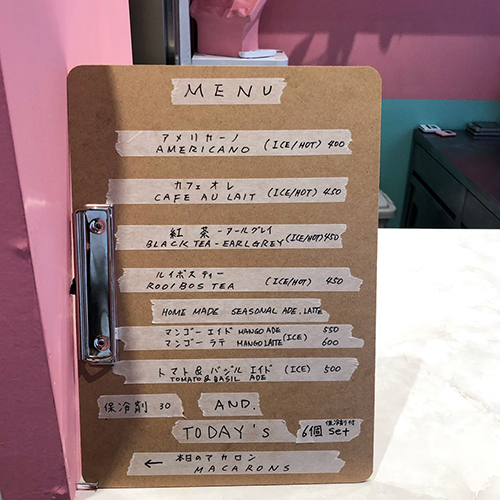 MENU
アメリカーノ
AMERICANO (ICE/HOT) 400
カフェオレ
CAFE AU LAIT (ICE/HOT) 450
紅茶-アールグレイ
BLACK TEA-EARLGREY (ICE/HOT) 450
ルイボスティー
ROOIBOS TEA (ICE/HOT) 450
HOME MADE SEASONAL ADE. LATTE
マンゴーエイド MANGO ADE 550
マンゴーラテ MANGO LATTE (ICE) 600
トマト&バジルエイド (ICE) 500
TOMATO&BASIL ADE
保冷剤 30 AND.
TODAY'S
保冷剤付
6個 Set
← 本日のマカロン
MACARONS